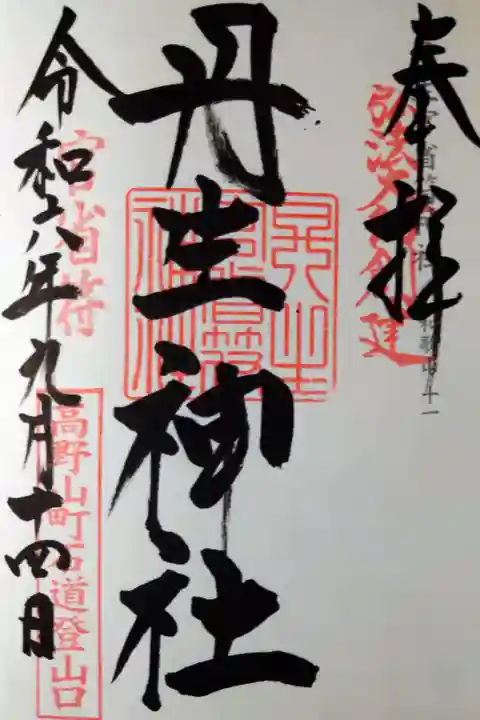 奉拝
弘法大師創建
丹生神社
令和六年九月十四日
官省符
高野山町石道登山口